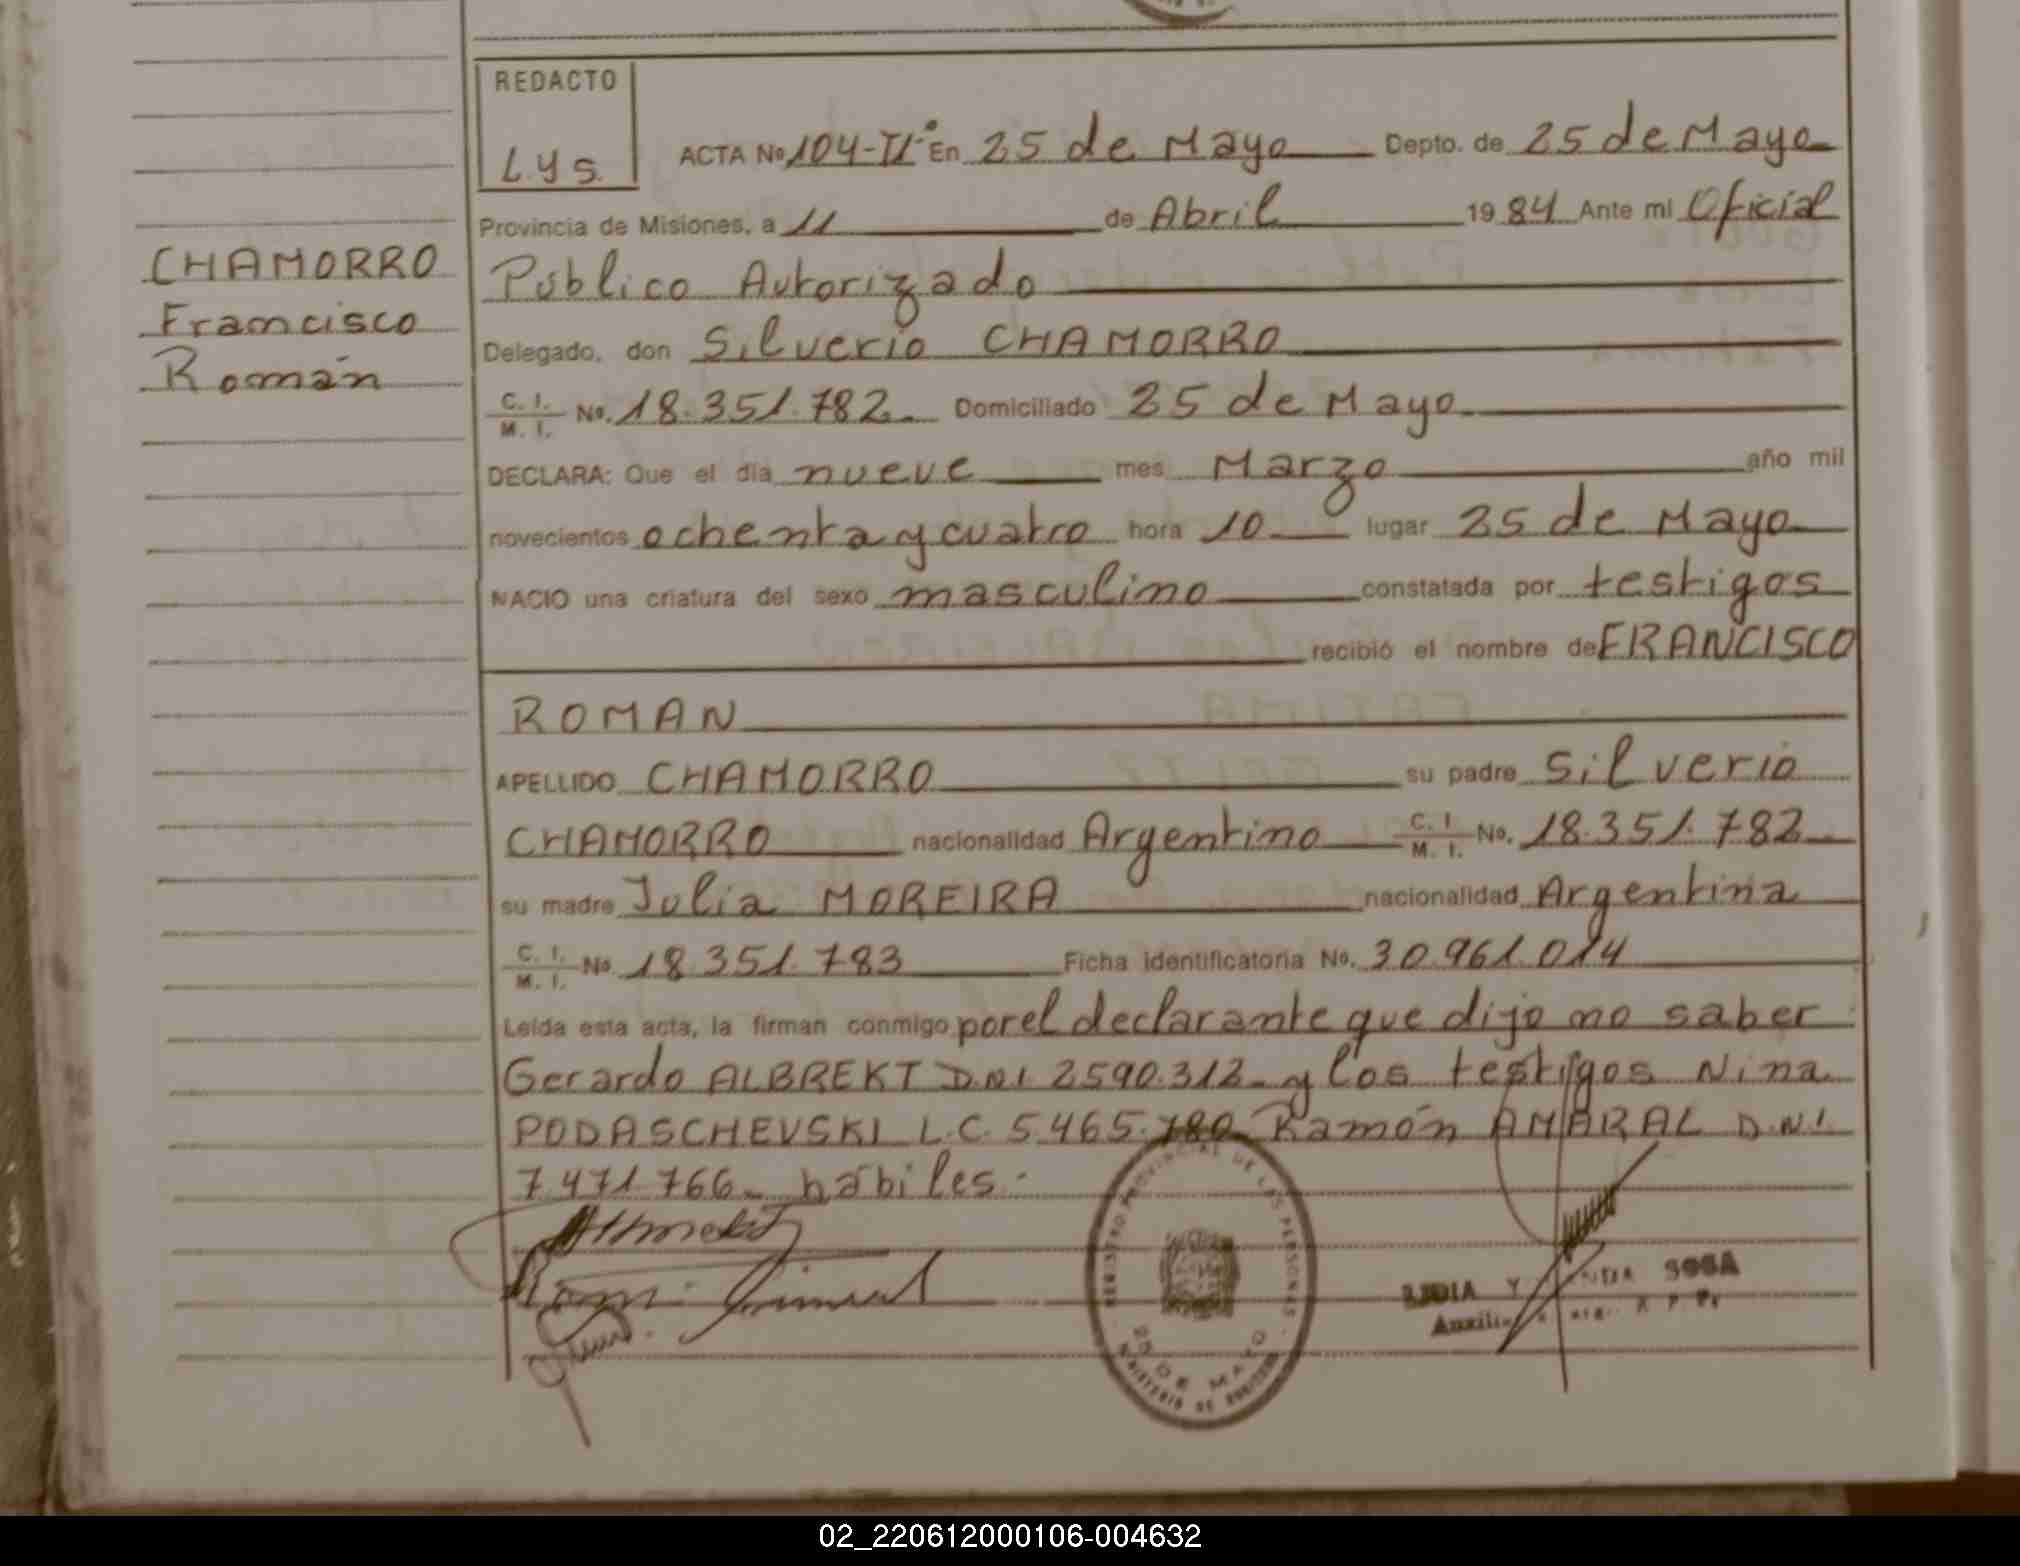 REDACTO
L.y.s.
ACTA No 104-II° En 25 de Mayo Depto. de 25 de Mayo
Provincia de Misiones, a 11 de Abril 1984 Ante mi Oficial
Público Autorizado
Delegado, don Silverio CHAMORRO
C. I. / M. I. No. 18.351.782 Domiciliado 25 de Mayo
DECLARA: Que el día nueve mes Marzo año mil
novecientos ochenta y cuatro hora 10 lugar 25 de Mayo
NACIO una criatura del sexo masculino constatada por testigos
recibió el nombre de FRANCISCO
ROMAN
APELLIDO CHAMORRO su padre Silverio
CHAMORRO nacionalidad Argentino C. I. / M. I. No. 18.351.782
su madre Julia MOREIRA nacionalidad Argentina
C. I. / M. I. No 18.351.783 Ficha identificatoria No. 30.961.014
Leída esta acta, la firman conmigo por el declarante que dijo no saber
Gerardo ALBREKT D.N.I 2590.312 y los testigos Nina
PODASCHEVSKI L.C. 5.465.780 Ramón AMARAL D.N.I.
7.471.766 hábiles.
CHAMORRO
Francisco
Román
REGISTRO PROVINCIAL DE LAS PERSONAS
25 DE MAYO
MINISTERIO DE
LIDIA Y SOSA
02_220612000106-004632